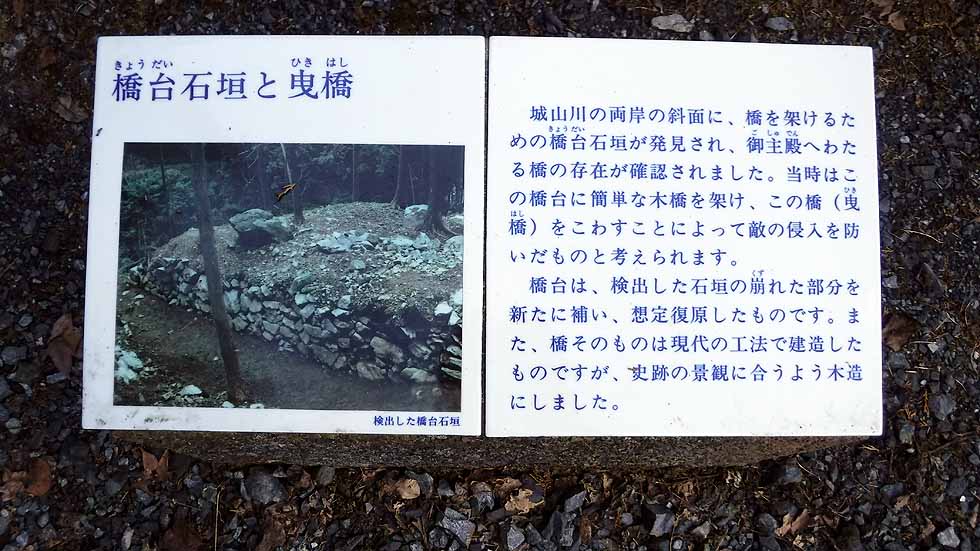 きょうだい ひきはし
橋台石垣と曳橋
検出した橋台石垣
城山川の両岸の斜面に、橋を架けるた
きょうだい ごしゅでん
めの橋台石垣が発見され、御主殿へわた
る橋の存在が確認されました。当時はこ
ひき
の橋台に簡単な木橋を架け、この橋（曳
はし
橋）をこわすことによって敵の侵入を防
いだものと考えられます。
くず
橋台は、検出した石垣の崩れた部分を
新たに補い、想定復原したものです。ま
た、橋そのものは現代の工法で建造した
ものですが、史跡の景観に合うよう木造
にしました。